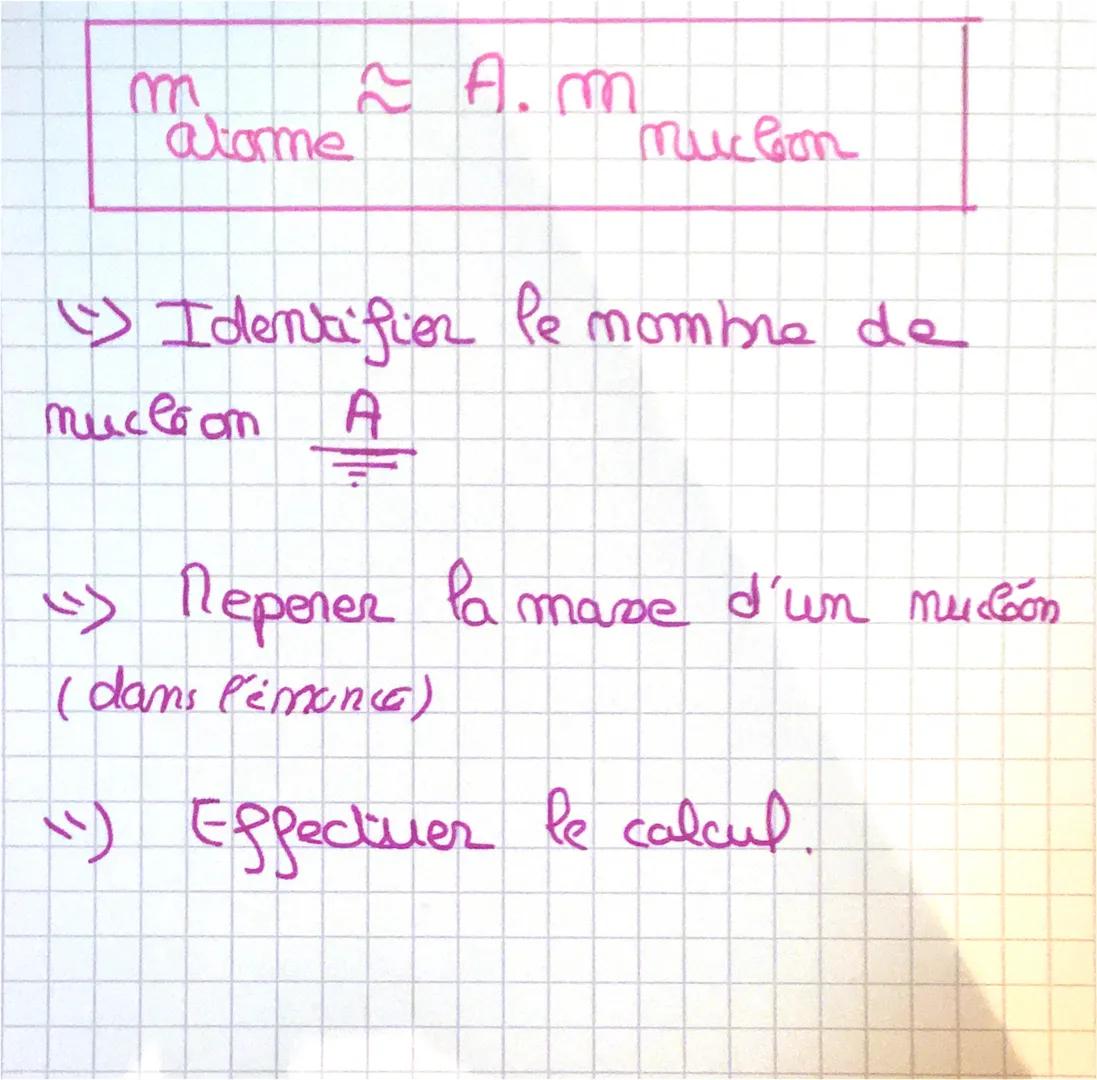 m atome ≈ A. m nucléon
=> Identifier le nombre de
nucléon A
=> Reperer la masse d'un nucléon
(dans l'énoncé)
=> Effectuer le calcul.